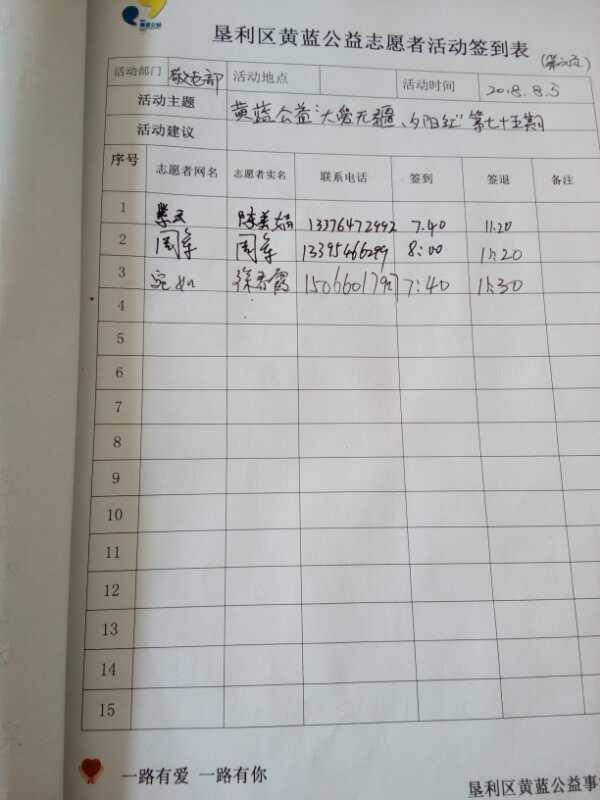 垦利区黄蓝公益志愿者活动签到表
活动部门 敬老部 活动地点 活动时间 2018.8.5
活动主题 黄蓝公益"大爱无疆、夕阳红"第七十五期
活动建议
序号 志愿者网名 志愿者实名 联系电话 签到 签退 备注
1 13376472992 7.40 11.20
2 周军 周军 13395466299 8:00 11:20
3 宛如 徐春霞 7:40 11:30
4
5
6
7
8
9
10
11
12
13
14
15
一路有爱 一路有你
垦利区黄蓝公益事